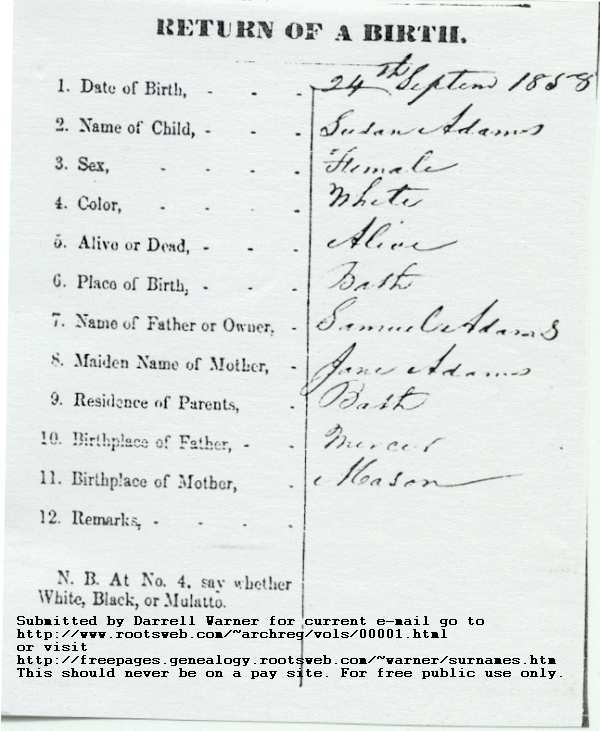 RETURN OF A BIRTH.
1. Date of Birth, - - - 24th Septem 1858
2. Name of Child, - - - Susan Adams
3. Sex, - - - - Female
4. Color, - - - - White
5. Alive or Dead, - - - Alive
6. Place of Birth, - - - Bath
7. Name of Father or Owner, - Samuel Adams
8. Maiden Name of Mother, - Jane Adams
9. Residence of Parents, - Bath
10. Birthplace of Father, - - Mercer
11. Birthplace of Mother, - Mason
12. Remarks, - - - -
N. B. At No. 4, say whether
White, Black, or Mulatto.
Submitted by Darrell Warner for current e-mail go to
http://www.rootsweb.com/~archreg/vols/00001.html
or visit
http://freepages.genealogy.rootsweb.com/~warner/surnames.htm
This should never be on a pay site. For free public use only.